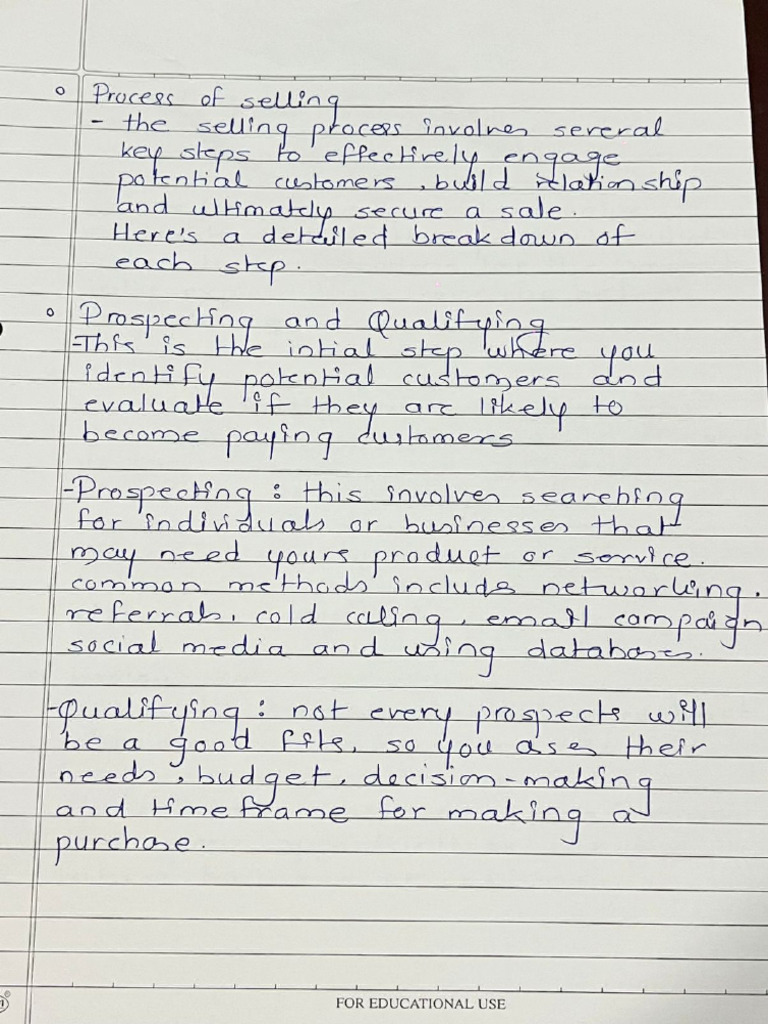 Process of selling
- the selling process involves several
key steps to effectively engage
potential customers, build relationship
and ultimately secure a sale.
Here's a detailed breakdown of
each step.
Prospecting and Qualifying
- This is the intial step where you
identify potential customers and
evaluate if they are likely to
become paying customers
- Prospecting : this involves searching
for individuals or businesses that
may need yours product or service.
common methods include networking.
referrals, cold calling, email campaign
social media and using databases.
- Qualifying : not every prospects will
be a good fits, so you ases their
needs, budget, decision-making
and timeframe for making a
purchase.
FOR EDUCATIONAL USE